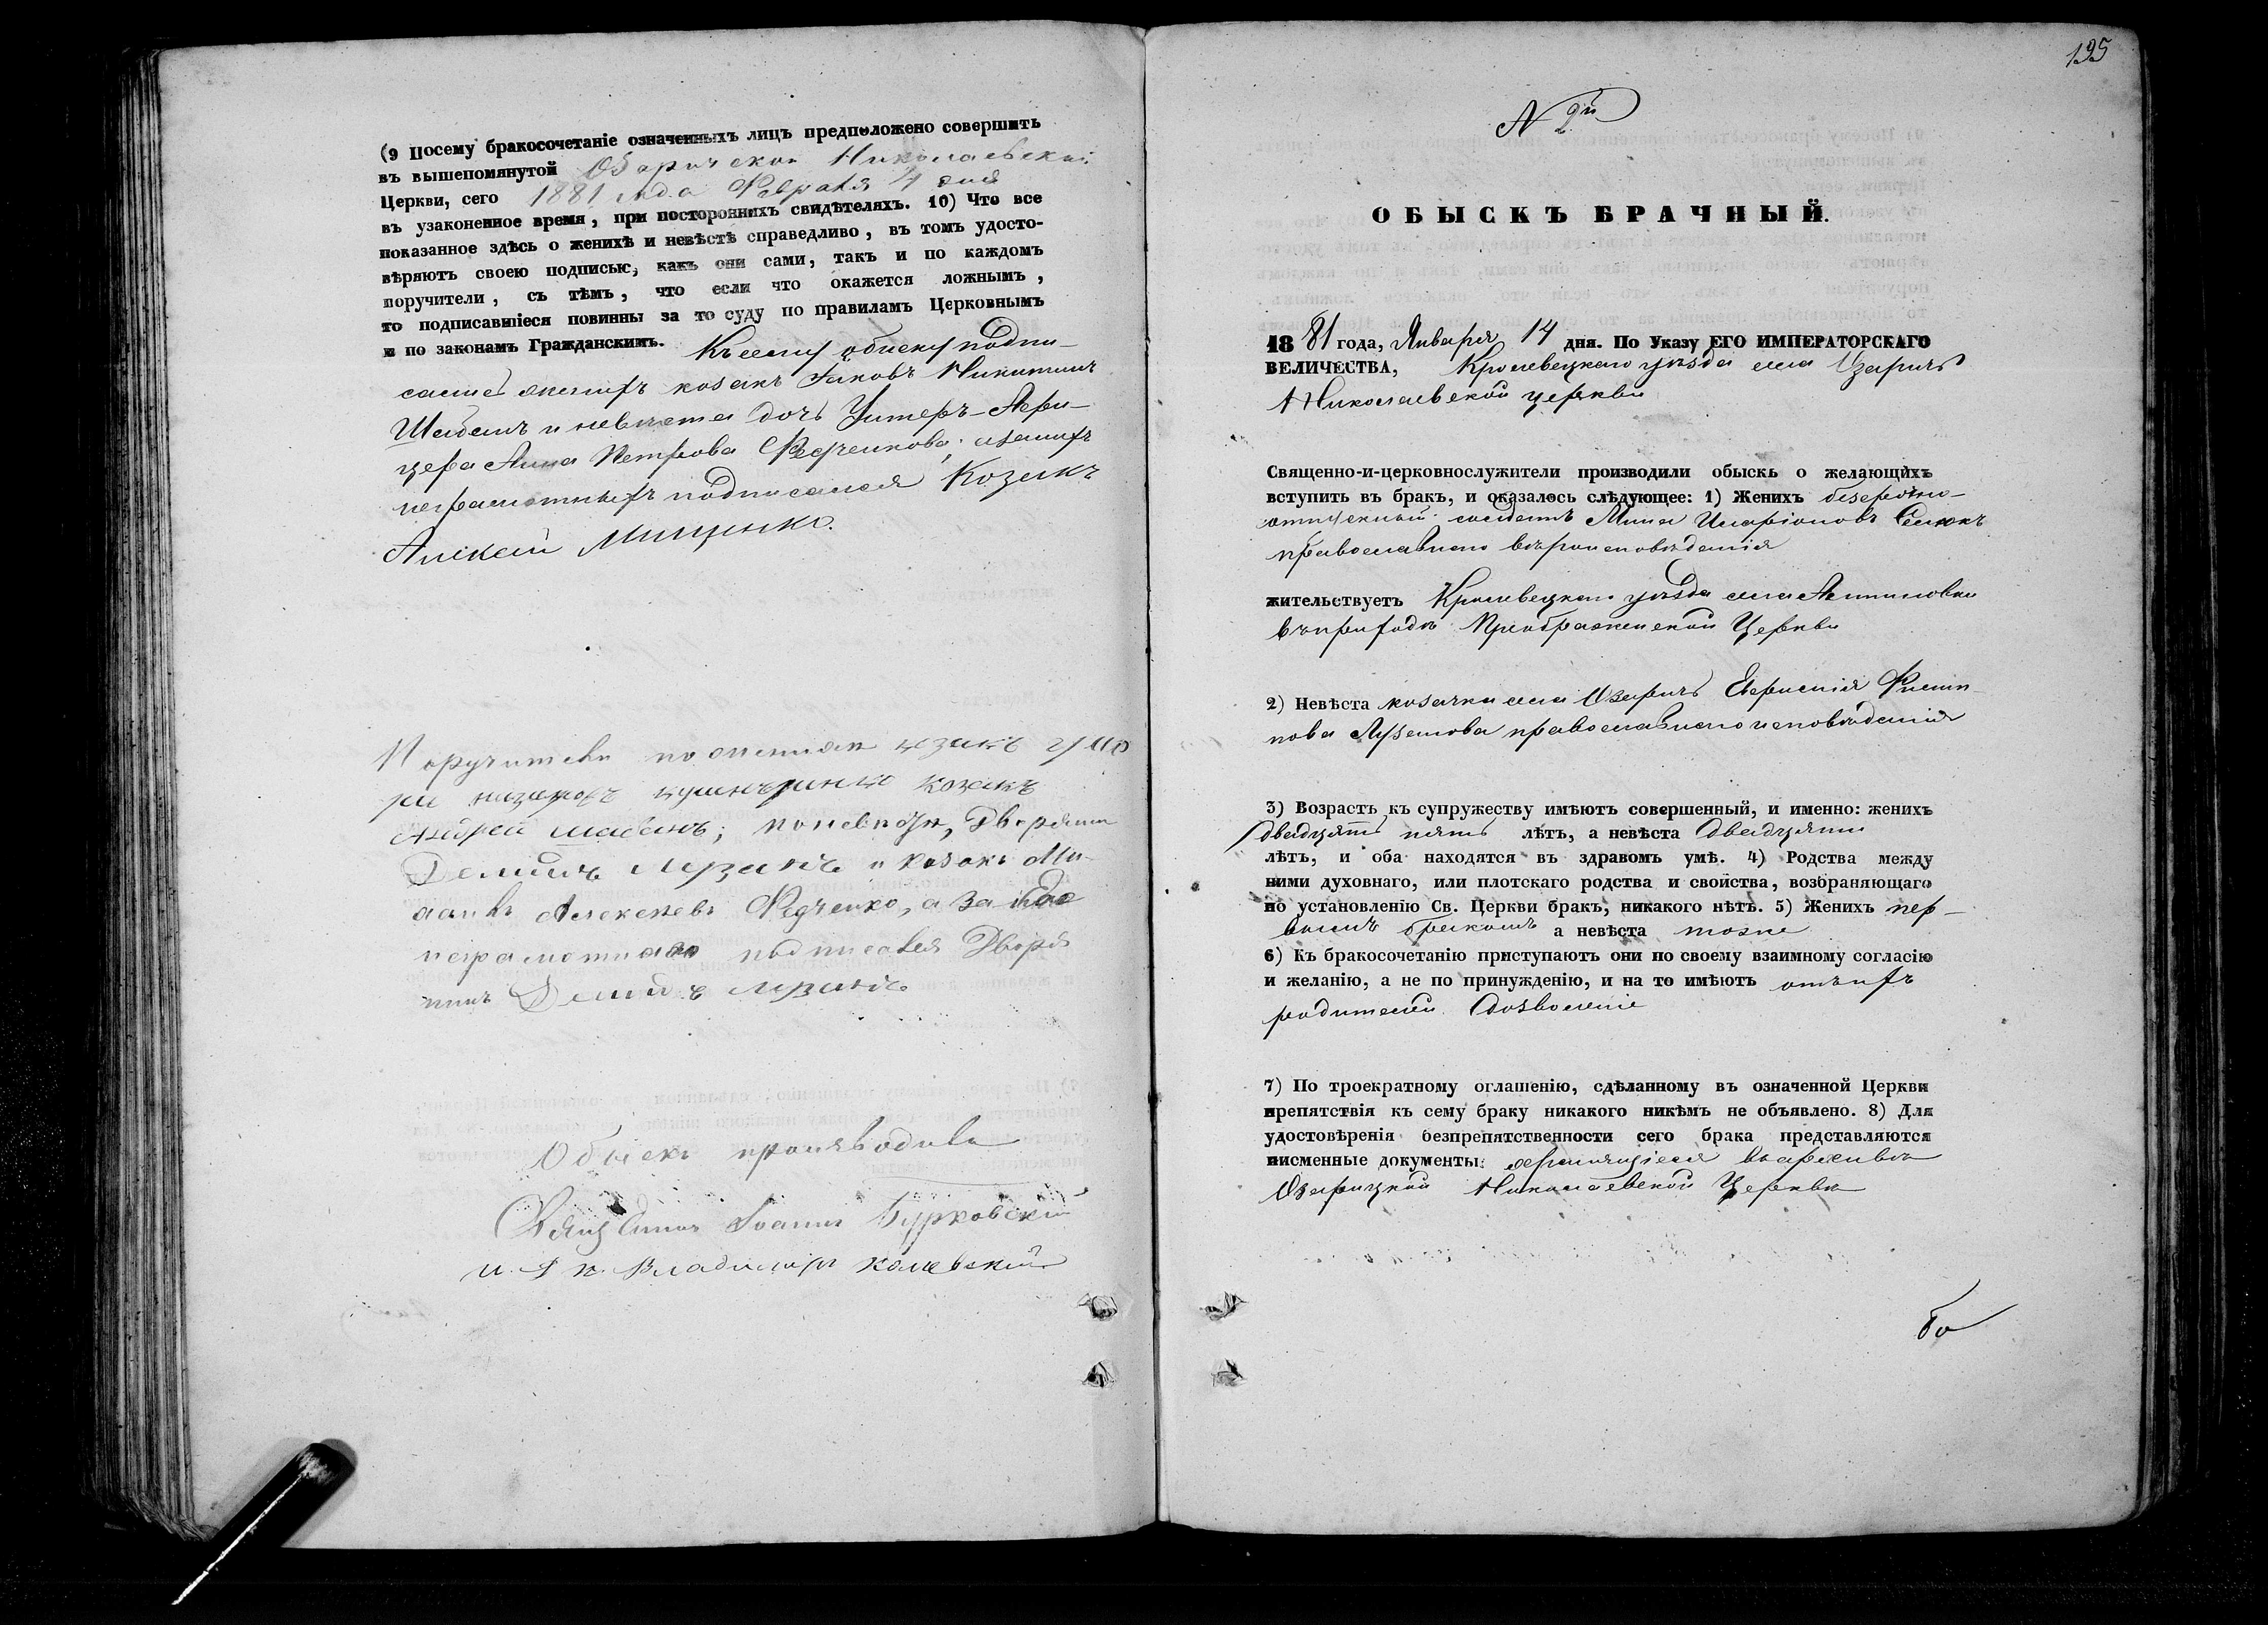 (9 Посему бракосочетаніе означенныхъ лицъ предположено совершить
въ вышепомянутой Озаричской Николаевской
Церкви, сего 1881 года Февраля 4 дня
въ узаконенное время, при постороннихъ свидѣтеляхъ. 10) Что все
показанное здѣсь о женихѣ и невѣстѣ справедливо, въ томъ удосто-
вѣряютъ своею подписью, какъ они сами, такъ и по каждомъ
поручители, съ тѣмъ, что если что окажется ложнымъ,
то подписавшіеся повинны за то суду по правиламъ Церковнымъ
и по законамъ Гражданскимъ. Къ сему обыску подпи-
сались женихъ козакъ Іаковъ Никитинъ
Шабанъ и невѣста дочь Унтеръ-Афи-
цера Анна Петрова Федченкова, а за нихъ
неграмотныхъ подписался Козакъ
Алексей Мищенко.
Поручители по женихѣ козакъ
козакъ
Андрей Шабанъ; по невѣстѣ, Дворянин
Демидъ Лузанъ и козакъ Ми-
хаилъ Алексеевъ Федченко, а за
неграмотнаго подписался Дворя
нинъ Демидъ Лузанъ
Обыскъ производили
Священникъ Іоаннъ Бурковскій
и. д. п. Владимиръ
195
N 2й
ОБЫСКЪ БРАЧНЫЙ.
1881 года, Января 14 дня. По Указу ЕГО ИМПЕРАТОРСКАГО
ВЕЛИЧЕСТВА, Кролевецкаго уѣзда села Озаричъ
Николаевской церкви
Священно-и-церковнослужители производили обыскъ о желающихъ
вступить въ бракъ, и оказалось слѣдующее: 1) Женихъ безсрочно-
отпускный солдатъ Мина Иларіоновъ
православнаго вѣроисповѣданія
жительствуетъ Кролевецкаго уѣзда села
въ приходѣ Преображенской Церкви
2) Невѣста козачка села Озаричъ Евфросинія Филип
пова Лузанова православнаго исповѣданія
3) Возрастъ къ супружеству имѣютъ совершенный, и именно: женихъ
двадцать пять лѣтъ, а невѣста двадцати
лѣтъ, и оба находятся въ здравомъ умѣ. 4) Родства между
ними духовнаго, или плотскаго родства и свойства, возбраняющаго
по установленію Св. Церкви бракъ, никакого нѣтъ. 5) Женихъ пер-
вымъ бракомъ а невѣста тоже
6) Къ бракосочетанію приступаютъ они по своему взаимному согласію
и желанію, а не по принужденію, и на то имѣютъ отъ ихъ
родителей дозволеніе
7) По троекратному оглашенію, сдѣланному въ означенной Церкви
препятствія къ сему браку никакого никѣмъ не объявлено. 8) Для
удостовѣренія безпрепятственности сего брака представляются
писменные документы: хранящіеся въ архивѣ
Озарицкой Николаевской Церкви